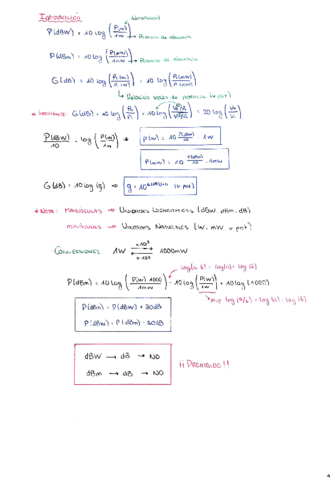 Introducción
P(dBW) = 10 log (P(w)/1W) → Potencia de referencia
P(dBm) = 10 log (P(mW)/1mW) → Potencia de referencia
G(dB) = 10 log (P₂(w)/P₁(w)) = 10 log (P₂(mW)/P₁(mW))
↳ Relación de potencia (v.pot)
G(dB) = 10 log (P₂/P₁) = 10 log = 20 log (V₂/V₁)
P(dBW)/10 = log (P(w)/1w) → P(w) = 10^(P(dBW)/10) · 1W
P(mW) = 10^(P(dBm)/10) · 1mW
G(dB) = 10 log (g) ⇒ g = 10^(G(dB)/10) (v.pot)
* NOTA: MAYÚSCULAS → UNIDADES LOGARÍTMICAS (dBW, dBm, dB)
minúsculas → UNIDADES NATURALES (W, mW, v.pot)
CONVERSIONES: 1W ⇄ 1000mW
log(a·b) = log(a) + log(b)
P(dBm) = 10 log (P(w)·1000/1mW) = 10 log (P(w)/1w) + 10 log (1000)
log (a/b) = log (a) - log (b)
P(dBm) = P(dBW) + 30dB
P(dBW) = P(dBm) - 30dB
dBW → dB → NO
dBm → dB → NO
¡¡ PROHIBIDO !!
4